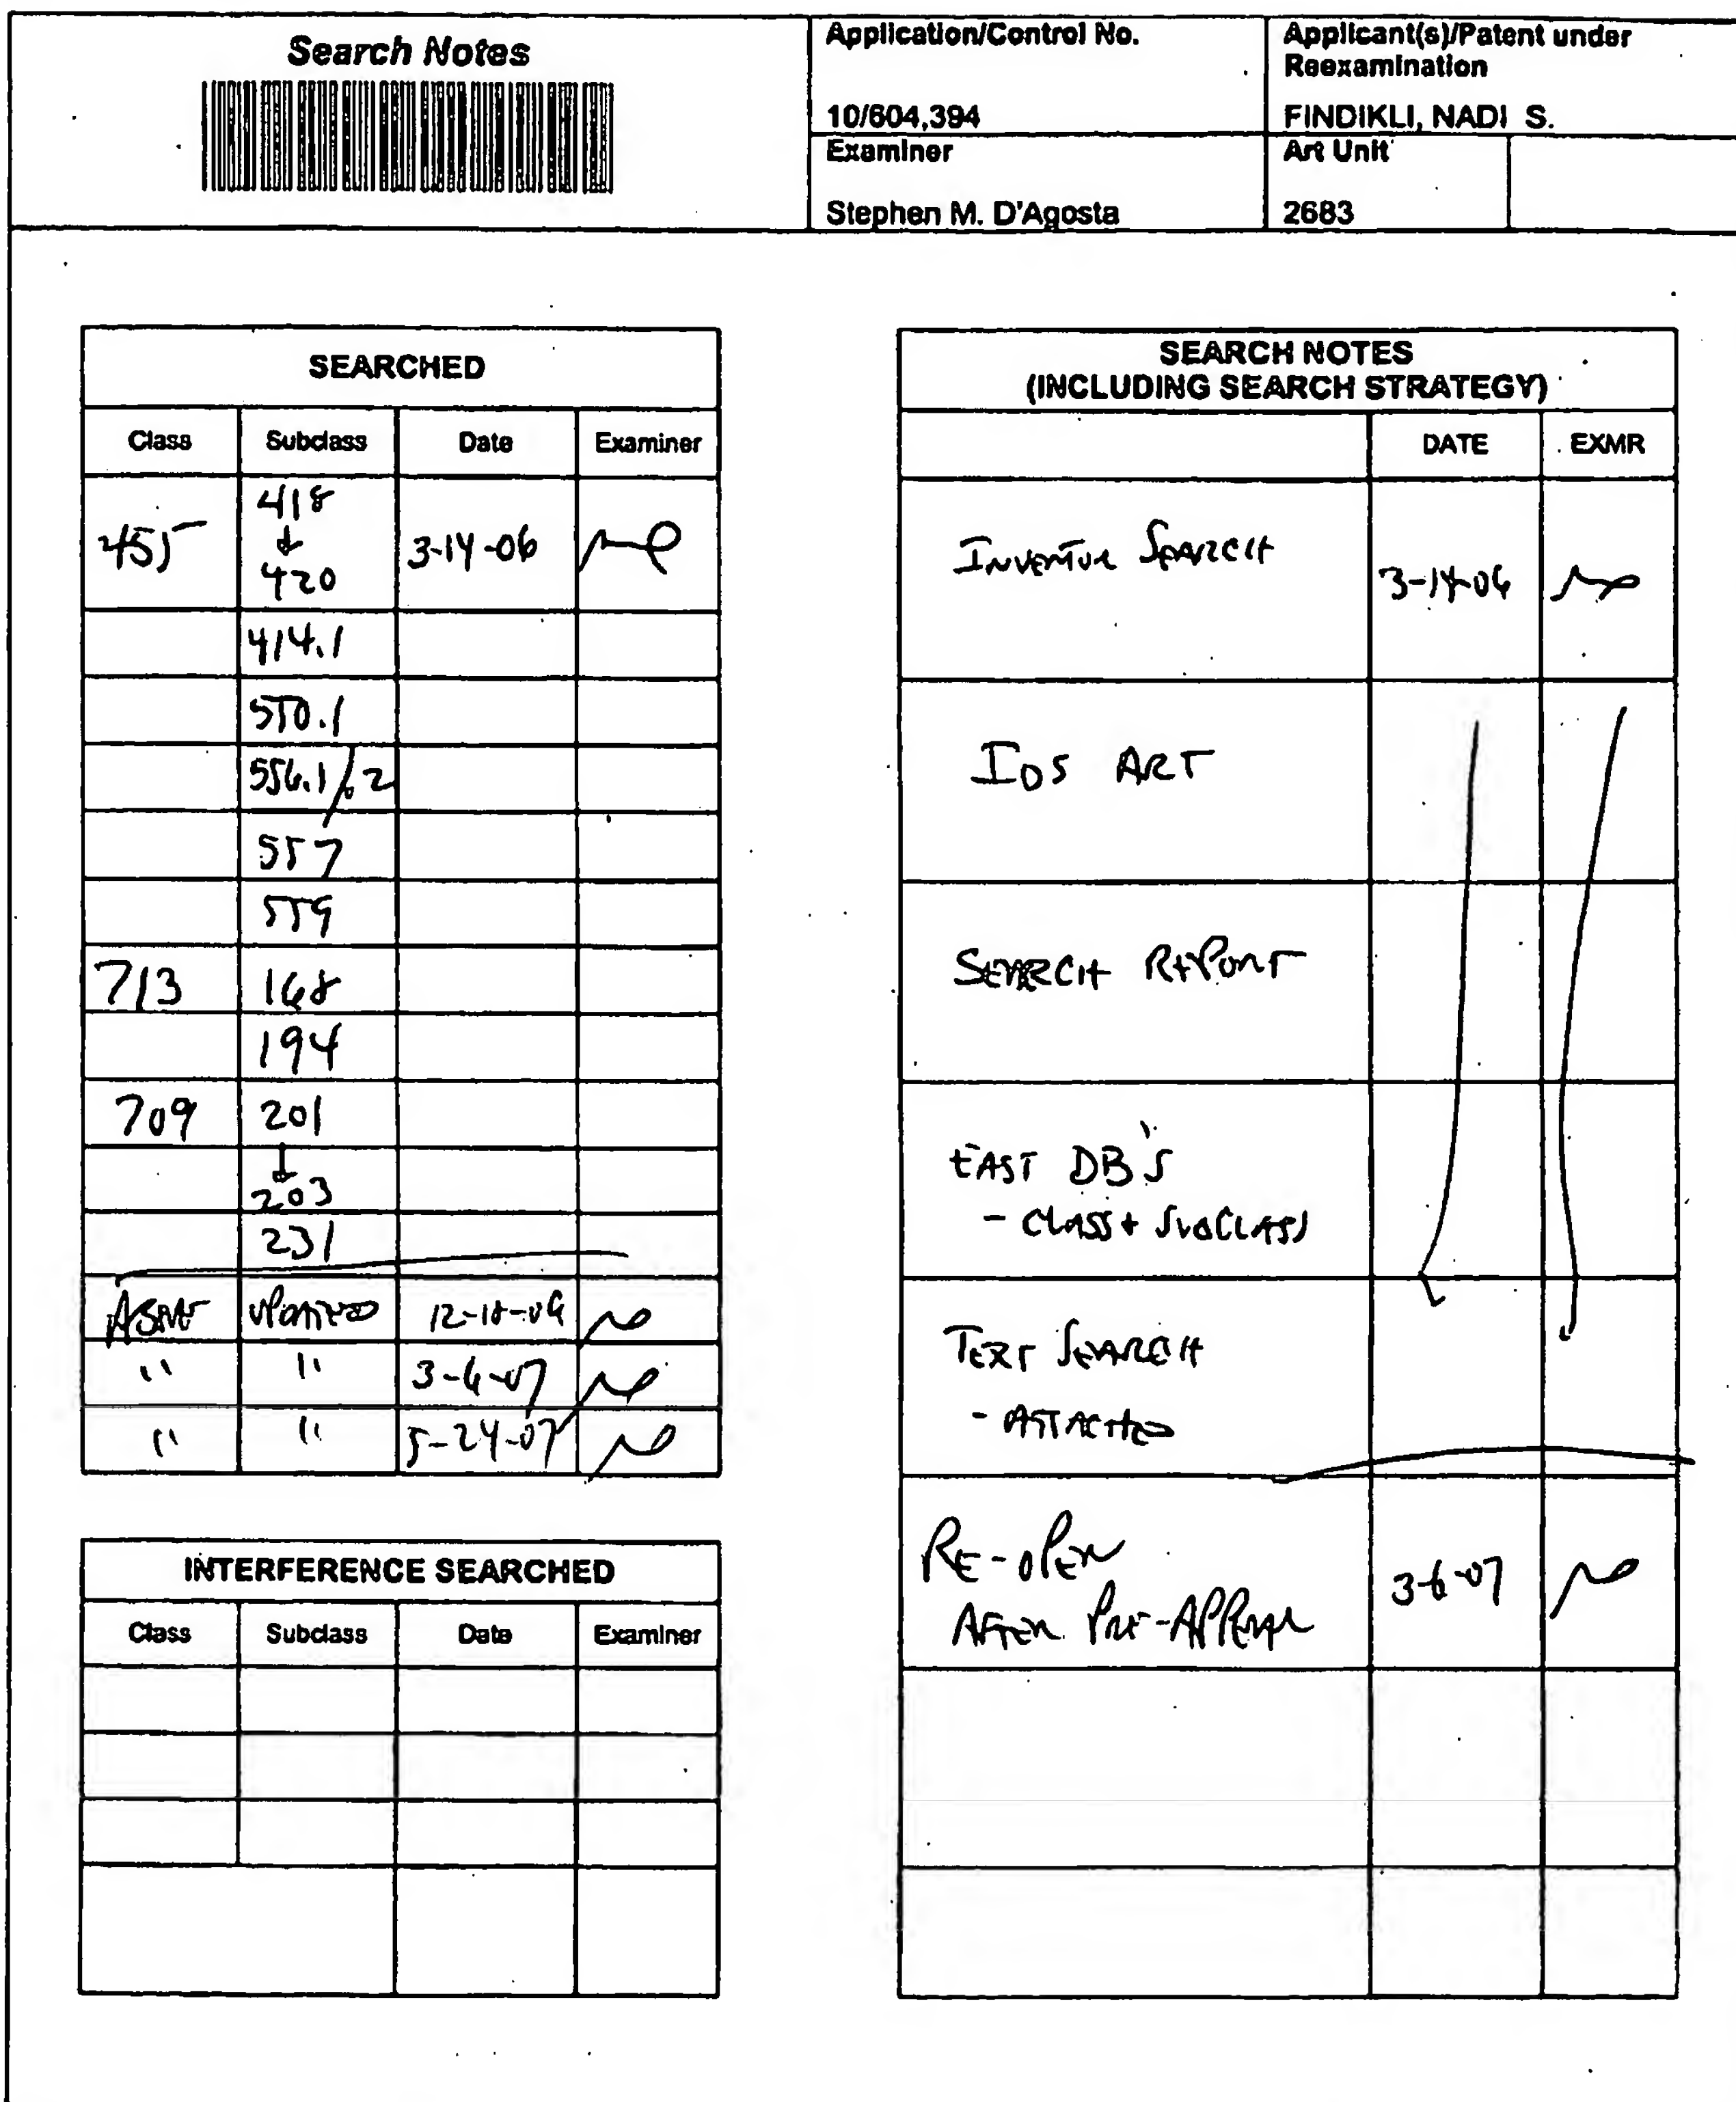 Search Notes
Application/Control No.
10/604,394
Applicant(s)/Patent under
Reexamination
FINDIKLI, NADI S.
Examiner
Stephen M. D'Agosta
Art Unit
2683
SEARCHED
Class Subclass Date Examiner
455 418 ↓ 420 3-14-06
414.1
550.1
556.1/.2
557
559
713 168
194
709 201
↓ 203
231
Above updated 12-18-06
" " 3-6-07
" " 5-24-07
INTERFERENCE SEARCHED
Class Subclass Date Examiner
SEARCH NOTES
(INCLUDING SEARCH STRATEGY)
DATE EXMR
INVENTOR SEARCH 3-14-06
IDS ART
SEARCH REPORT
EAST DB'S
- CLASS + SUBCLASS
TEXT SEARCH
- ATTACHED
RE-OPEN
AFTER PRE-APPEAL 3-6-07